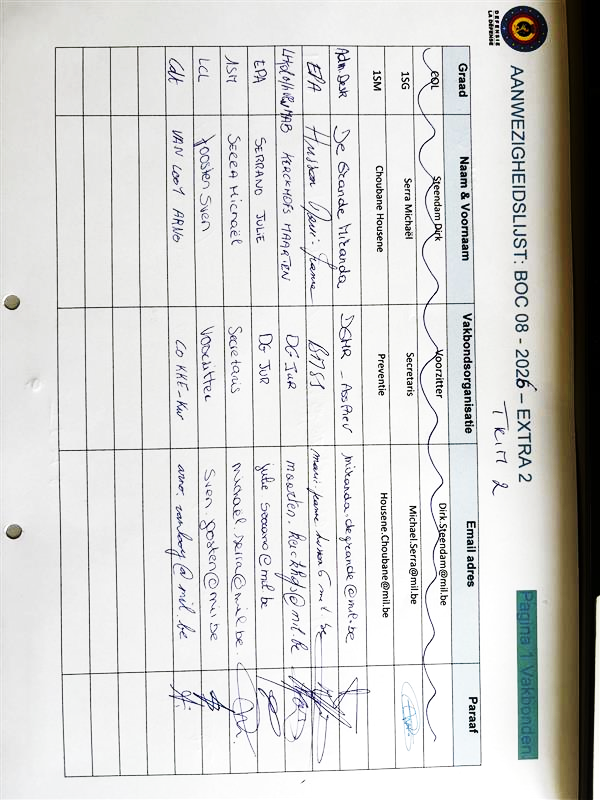 DEFENSIE
LA DEFENSE
AANWEZIGHEIDSLIJST: BOC 08 - 2026 – EXTRA 2
TRIM 2
Pagina 1 Vakbonden.
Graad Naam & Voornaam Vakbondsorganisatie Email adres Paraaf
COL Steendam Dirk Voorzitter Dirk.Steendam@mil.be
1SG Serra Michaël Secretaris Michael.Serra@mil.be
1SM Choubane Housene Preventie Housene.Choubane@mil.be
Adm. Desk De Grande Miranda DGHR - miranda.degrande@mil.be
EPA
KERCKHOFS MAARTEN DG JUR maarten.kerckhofs@mil.be
EPA SERRANO JULIE DG JUR julie.serrano@mil.be
1SM SERRA MICHAËL Secretaris michael.serra@mil.be.
LCL Joosten Sven Voorzitter Sven.joosten@mil.be
Cdt VAN LOOY ARNO arno.vanlooy@mil.be